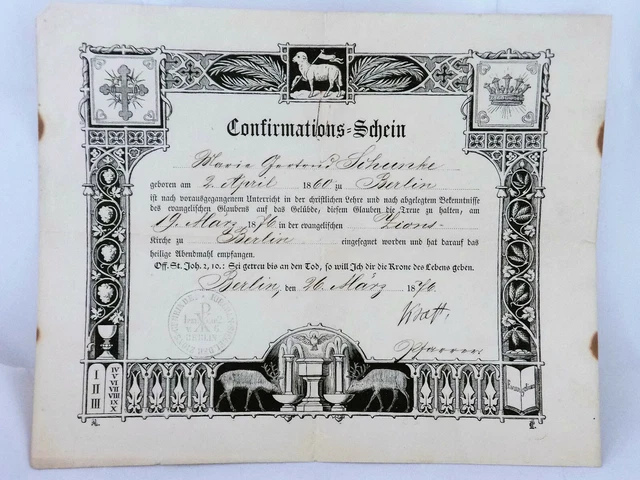 Confirmations-Schein
Marie Gertrud Schunke
geboren am 2. April 1860 zu Berlin
ist nach vorausgegangenem Unterricht in der christlichen Lehre und nach abgelegtem Bekenntnisse
des evangelischen Glaubens auf das Gelübde, diesem Glauben die Treue zu halten, am
19. März 1876 in der evangelischen Zions-
Kirche zu Berlin eingesegnet worden und hat darauf das
heilige Abendmahl empfangen.
Off. St. Joh. 2, 10.: Sei getreu bis an den Tod, so will Ich dir die Krone des Lebens geben.
Berlin, den 26. März 1876.
Kraft,
Pfarrer
BERLIN
I
II
III
IV
V
VI
VII
VIII
IX
X
Evangelium